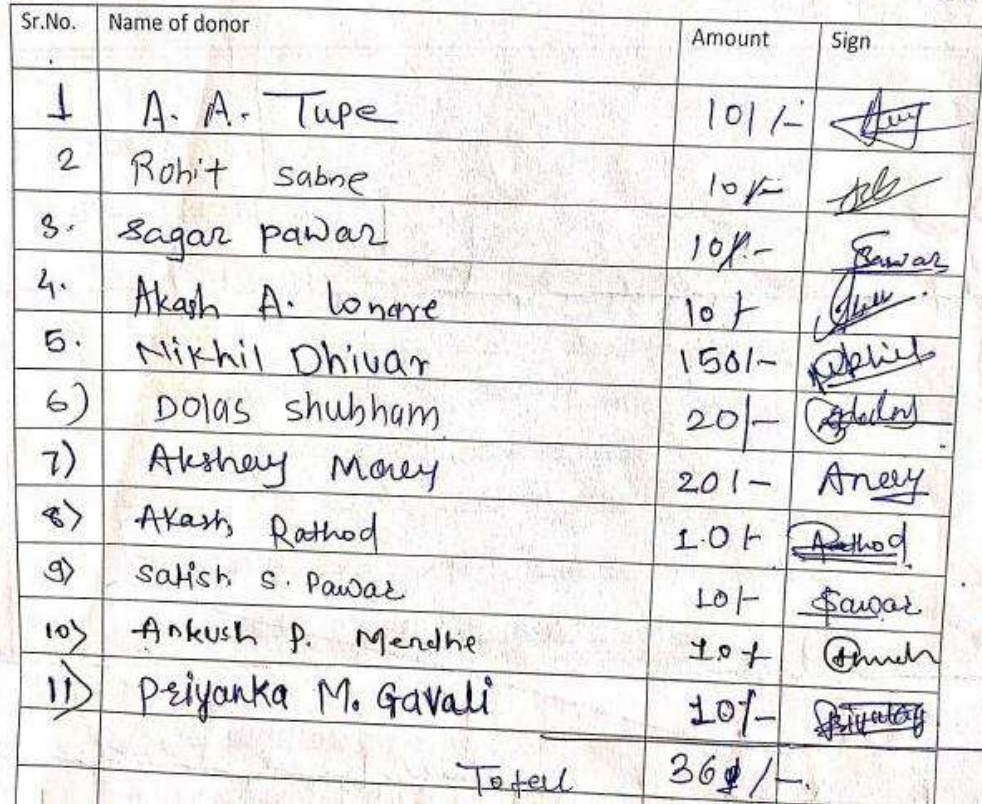 Sr.No. Name of donor Amount Sign
1 A. A. Tupe 101/-
2 Rohit Sabne 10/-
3. Sagar pawar 10/- Pawar
4. Akash A. Lonare 10/-
5. Nikhil Dhivar 150/- Nikhil
6) Dolas Shubham 20/-
7) Akshay Morey 20/-
8) Akash Rathod 10/- Rathod
9) Satish S. Pawar 10/- Pawar
10) Ankush P. Mendhe 10/-
11) Priyanka M. Gavali 10/-
Total 361/-